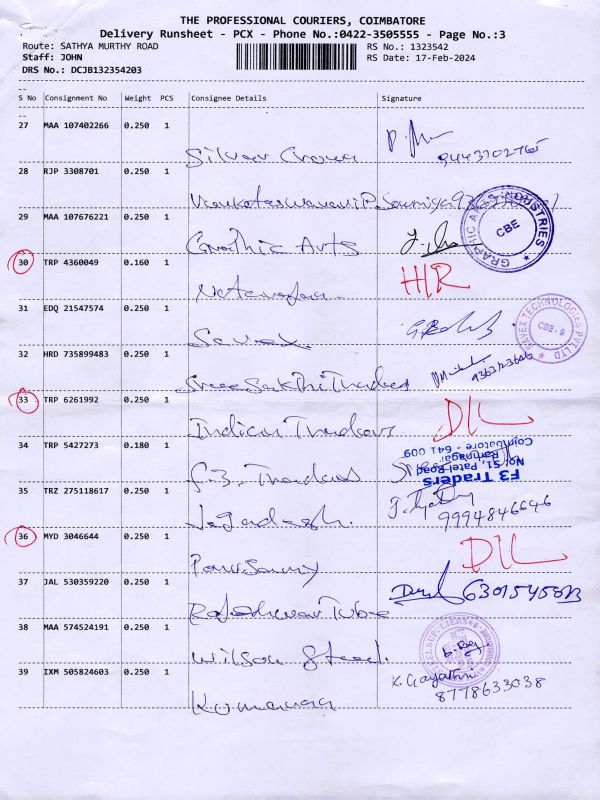 THE PROFESSIONAL COURIERS, COIMBATORE
Delivery Runsheet - PCX - Phone No.:0422-3505555 - Page No.:3
Route: SATHYA MURTHY ROAD RS No.: 1323542
Staff: JOHN RS Date: 17-Feb-2024
DRS No.: DCJB132354203
S No Consignment No Weight PCS Consignee Details Signature
27 MAA 107402266 0.250 1
Silver Crown
28 RJP 3308701 0.250 1
29 MAA 107676221 0.250 1
Graphic Arts GRAPHIC ARTS INDUSTRIES CBE
30 TRP 4360049 0.160 1
31 EDQ 21547574 0.250 1
Savex SAVEX TECHNOLOGIES PVT LTD CBE-9
32 HRD 735899483 0.250 1
Sree Sakthi Traders
33 TRP 6261992 0.250 1
Indian Traders D/L
34 TRP 5427273 0.180 1
F3 Traders
F3 Traders
No: 51, Patel Road
Ramnagar
Coimbatore - 641 009
35 TRZ 275118617 0.250 1
Jagadesh. 9994846646
36 MYD 3046644 0.250 1
D/L
37 JAL 530359220 0.250 1
Rajeshwari Tube
38 MAA 574524191 0.250 1
Wilson Steel.
39 IXM 505824603 0.250 1
K. Gayathri
8778633038